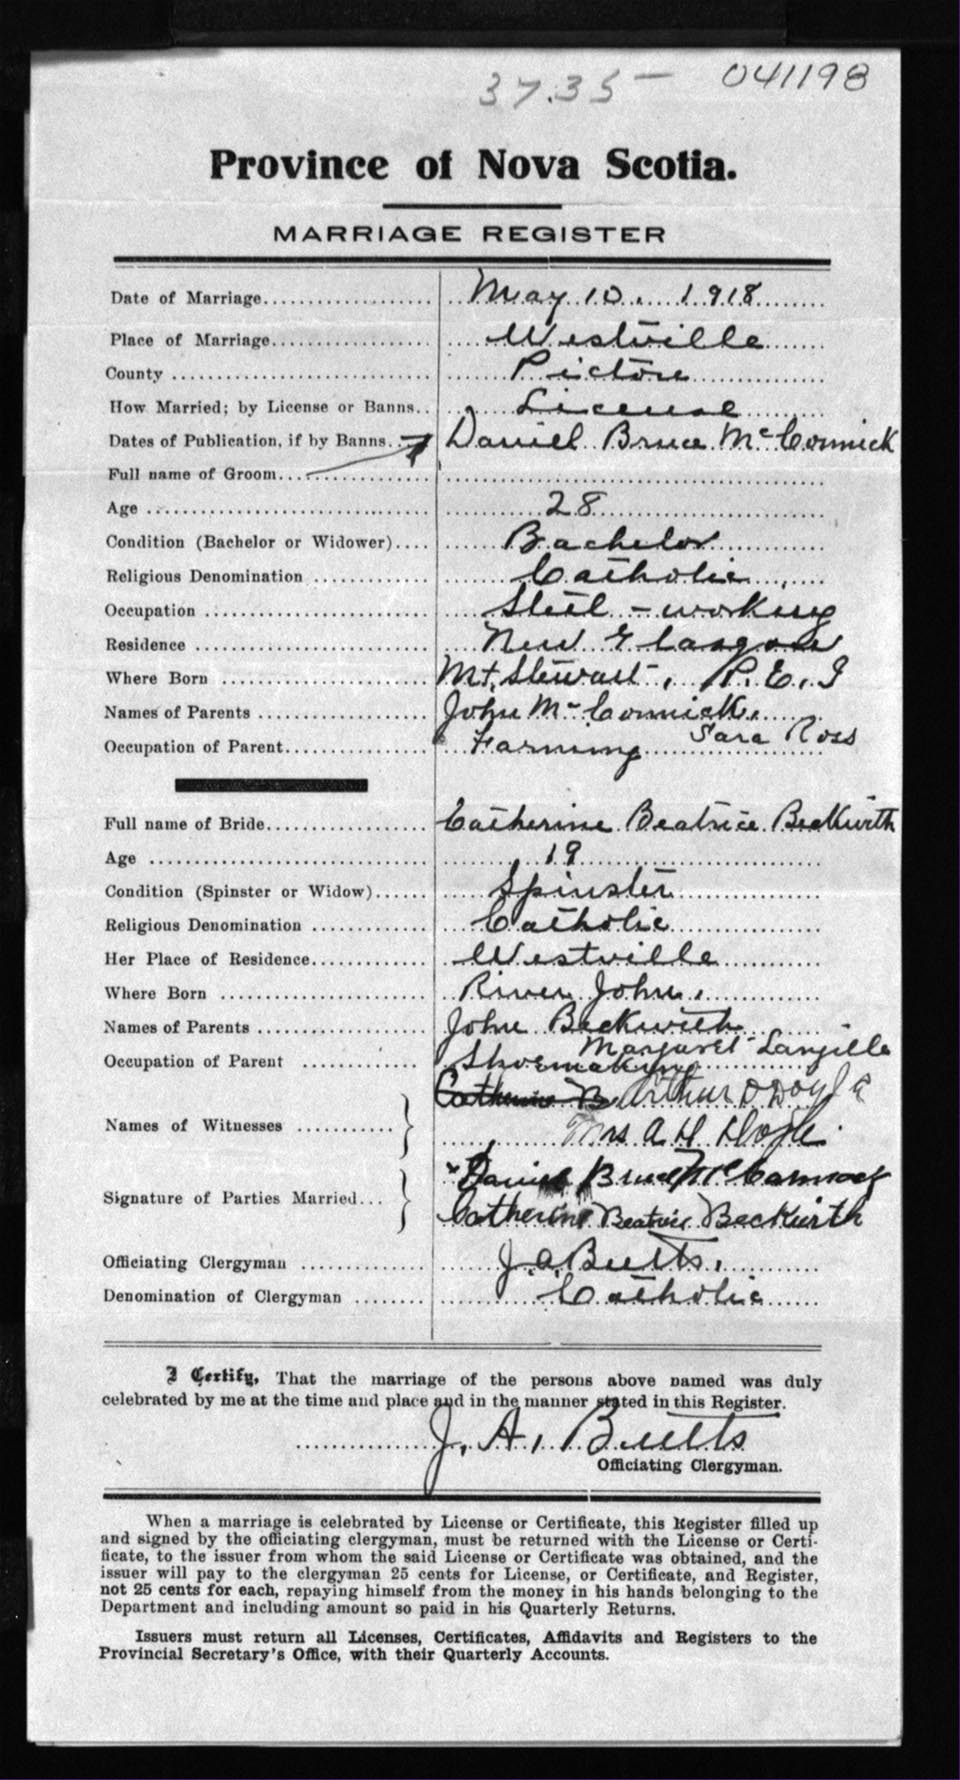 37.35—
041198
Province of Nova Scotia.
MARRIAGE REGISTER
Date of Marriage.................... May 10. 1918
Place of Marriage................... Westville
County .............................. Pictou
How Married; by License or Banns.. License
Dates of Publication, if by Banns.. Daniel Bruce McCormick
Full name of Groom...
Age ................................. 28
Condition (Bachelor or Widower).... Bachelor
Religious Denomination ............. Catholic
Occupation .......................... Steel-working
Residence ........................... New Glasgow
Where Born .......................... Mt. Stewart, P.E.I
Names of Parents .................... John McCormick.
Sara Ross
Occupation of Parent................. Farming
Full name of Bride................... Catherine Beatrice Beckwith
Age ................................. 19
Condition (Spinster or Widow)...... Spinster
Religious Denomination ............. Catholic
Her Place of Residence.............. Westville
Where Born .......................... River John.
Names of Parents .................... John Beckwith
Margaret Langille
Occupation of Parent ................ Shoemaking
Catherine B Arthur D Doyle
Names of Witnesses ...........
Mrs A D Doyle.
x Daniel Bruce McCormick
Signature of Parties Married...
Catherine Beatrice Beckwirth
Officiating Clergyman ............. J.A. Butts.
Denomination of Clergyman ........ Catholic
I Certify, That the marriage of the persons above named was duly
celebrated by me at the time and place and in the manner stated in this Register.
J. A. Butts
Officiating Clergyman.
When a marriage is celebrated by License or Certificate, this Register filled up
and signed by the officiating clergyman, must be returned with the License or Certi-
ficate, to the issuer from whom the said License or Certificate was obtained, and the
issuer will pay to the clergyman 25 cents for License, or Certificate, and Register,
not 25 cents for each, repaying himself from the money in his hands belonging to the
Department and including amount so paid in his Quarterly Returns.
Issuers must return all Licenses, Certificates, Affidavits and Registers to the
Provincial Secretary's Office, with their Quarterly Accounts.